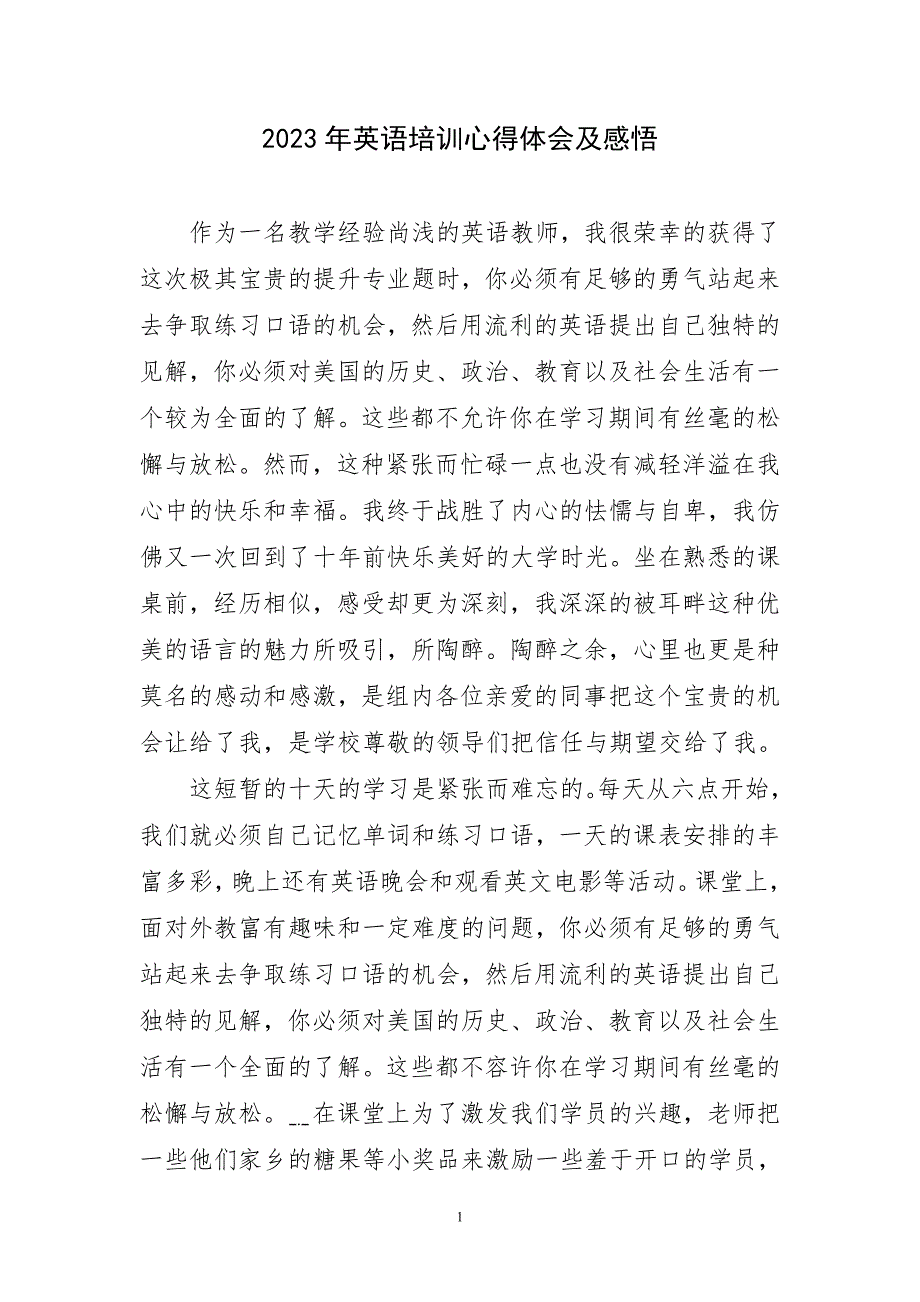 2023 年英语培训心得体会及感悟
作为一名教学经验尚浅的英语教师，我很荣幸的获得了
这次极其宝贵的提升专业题时，你必须有足够的勇气站起来
去争取练习口语的机会，然后用流利的英语提出自己独特的
见解，你必须对美国的历史、政治、教育以及社会生活有一
个较为全面的了解。这些都不允许你在学习期间有丝毫的松
懈与放松。然而，这种紧张而忙碌一点也没有减轻洋溢在我
心中的快乐和幸福。我终于战胜了内心的怯懦与自卑，我仿
佛又一次回到了十年前快乐美好的大学时光。坐在熟悉的课
桌前，经历相似，感受却更为深刻，我深深的被耳畔这种优
美的语言的魅力所吸引，所陶醉。陶醉之余，心里也更是种
莫名的感动和感激，是组内各位亲爱的同事把这个宝贵的机
会让给了我，是学校尊敬的领导们把信任与期望交给了我。
这短暂的十天的学习是紧张而难忘的。每天从六点开始，
我们就必须自己记忆单词和练习口语，一天的课表安排的丰
富多彩，晚上还有英语晚会和观看英文电影等活动。课堂上，
面对外教富有趣味和一定难度的问题，你必须有足够的勇气
站起来去争取练习口语的机会，然后用流利的英语提出自己
独特的见解，你必须对美国的历史、政治、教育以及社会生
活有一个全面的了解。这些都不容许你在学习期间有丝毫的
松懈与放松。_._在课堂上为了激发我们学员的兴趣，老师把
一些他们家乡的糖果等小奖品来激励一些羞于开口的学员，
1